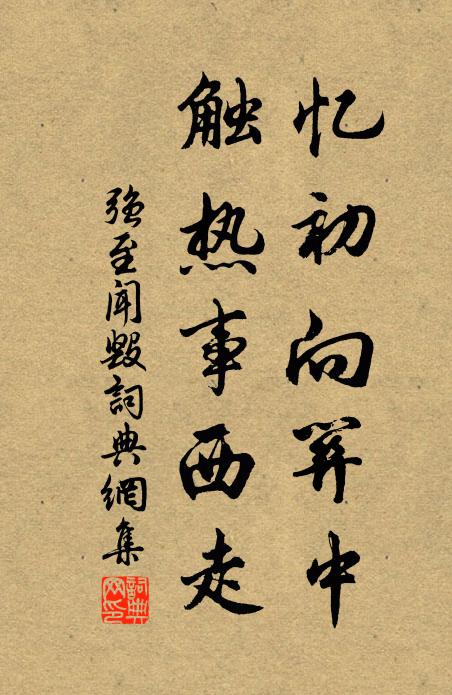 忆初向笄中
触热事西走
强至闻毁詞典網集
詞典网印